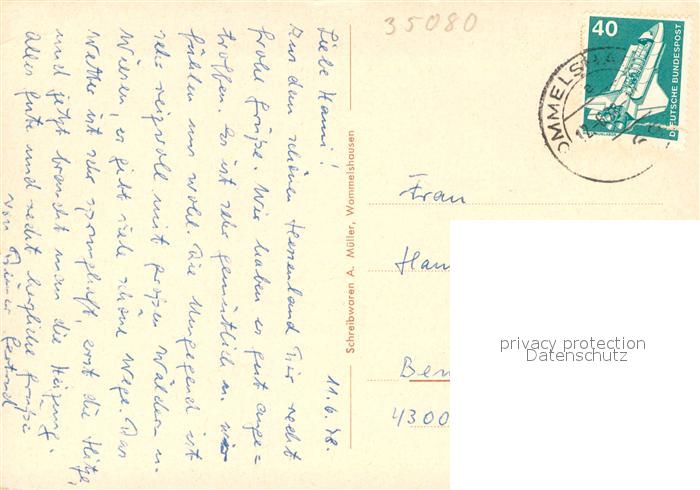 35080
40
DEUTSCHE BUNDESPOST
OMMELSHA
11.6.78.
Liebe Hanni!
Aus dem schönen Hessenland Dir recht
frohe Grüße. Wir haben es gut ange=
troffen. Es ist sehr gemütlich u. wir
fühlen uns wohl. Die Umgegend ist
sehr reizvoll mit großen Wäldern u.
Wiesen, es gibt viele schöne Wege. Das
Wetter ist sehr sprunghaft, erst die Hitze,
und jetzt braucht man die Heizung.
Alles gute und recht herzliche Grüße
von Deiner Gertrud
Schreibwaren A. Müller, Wommelshausen
Frau
Han
Ben
4300
privacy protection
Datenschutz